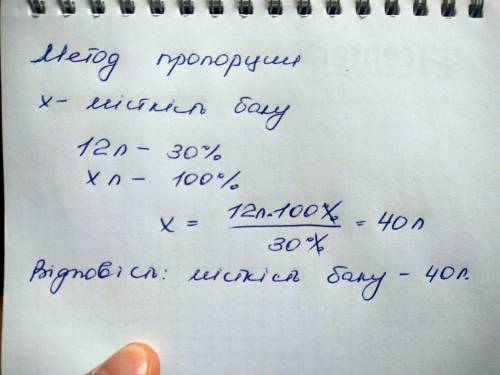 Метод пропорции
х - місткість баку
12л - 30%
х л - 100%
х = 12л·100% / 30% = 40л
Відповість: місткість баку - 40л.